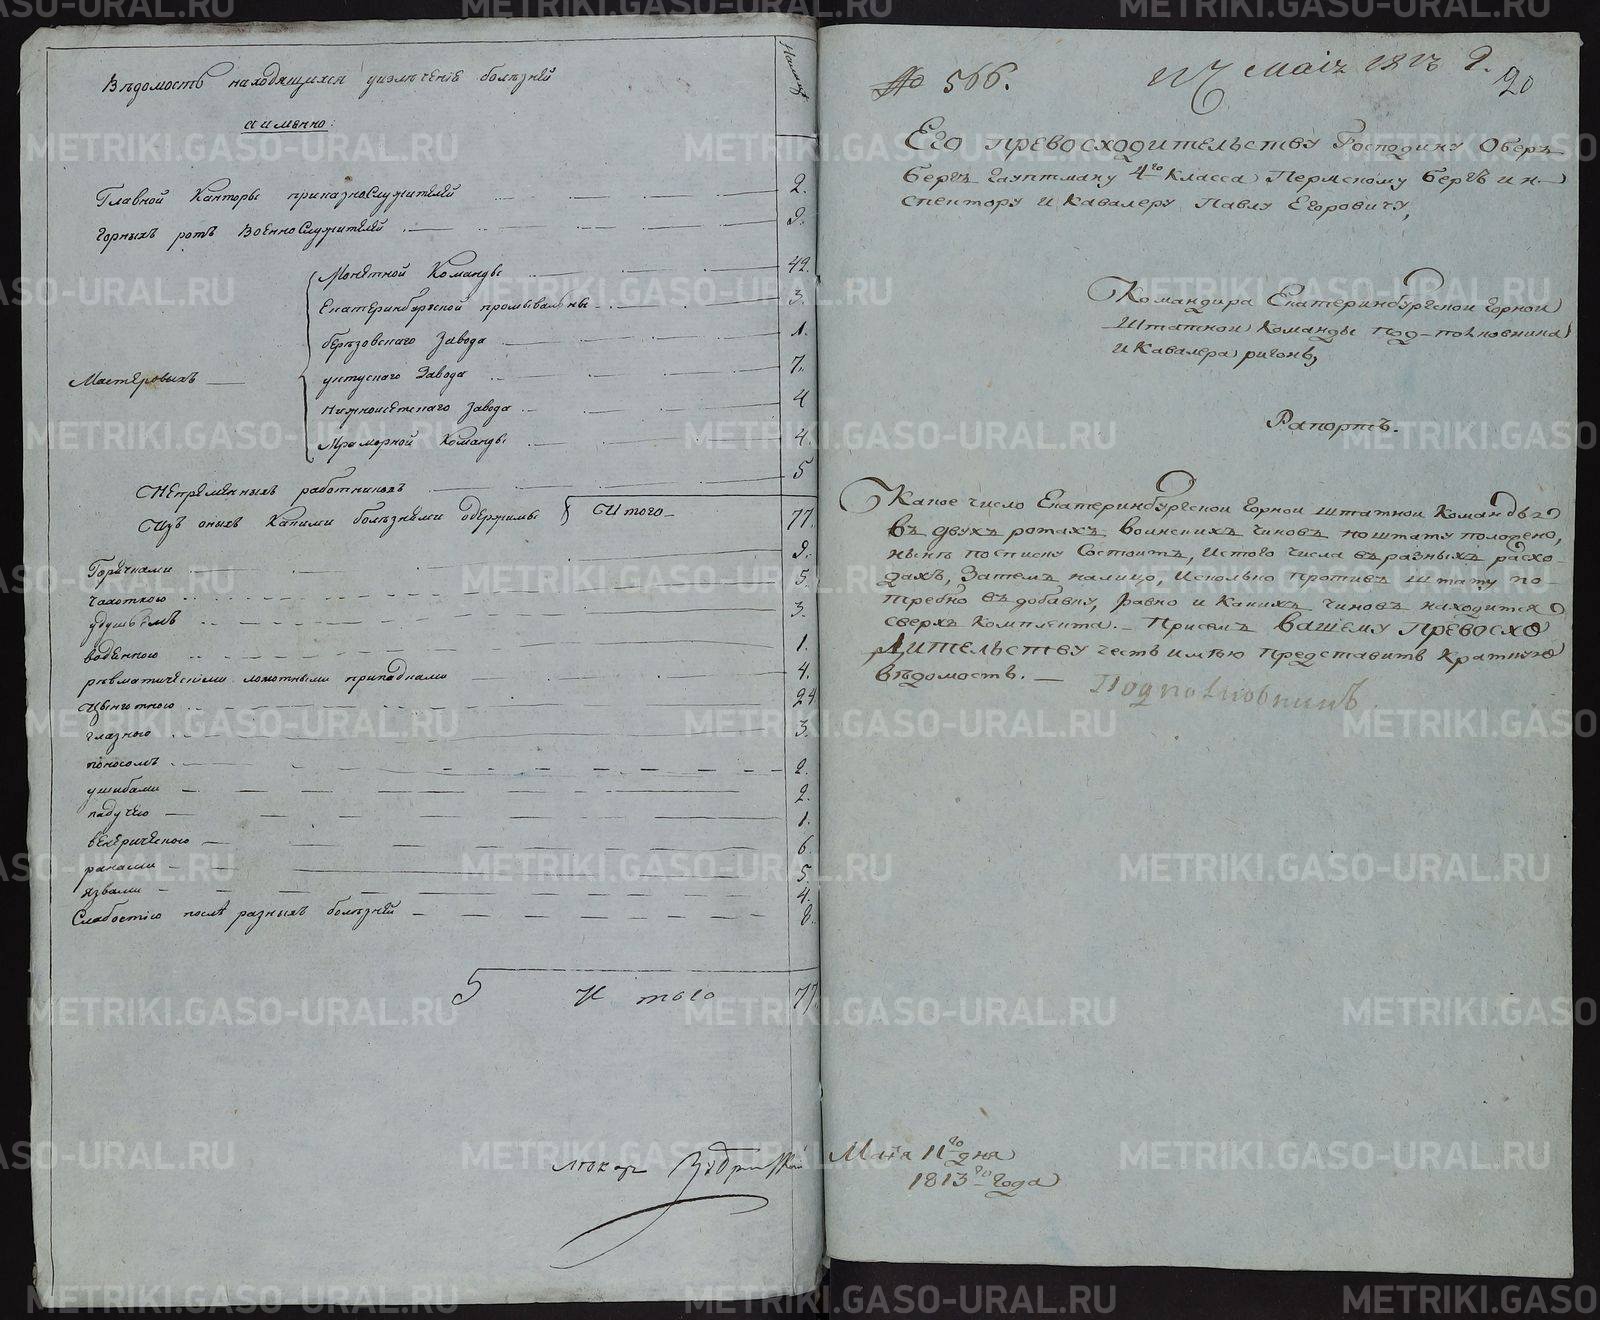 Вѣдомость находящихся уизлѣченіе болѣзней
а имянно:
Налицо
Главной Канторы приказнослужителей 2.
Горныхъ ротъ военнослужителей 9.
Мастеровыхъ
Монетной Команды 42.
Екатеринбургской промывальны 3.
березовскаго Завода 1.
уктускаго Завода 7.
Нижноисетскаго Завода 4
Мраморной Команды 4.
Непременныхъ работниковъ 5
Изъ оныхъ Какими болѣзнями одержимы Итого 77.
Горячками 9.
чахоткою 5.
удушьемъ 3.
водяною 1.
ревматическими ломотными припадками 4.
Цынготною 24
глазною 3.
поносомъ 2.
ушибами 2.
падучею 1.
венерическою 6.
ранами 5.
язвами 4.
Слабостію послѣ разныхъ болѣзней 8.
Итого 77.
лекарь
No 566.
Маія 1813
20
Его превосходительству Господину Оберъ
Бергъ гауптману 4го Класса Пермскому бергъ ин-
спектору и Кавалеру Павлу Егоровичу,
Командира Екатеринбургской Горной
Штатной Команды под-полковника
и Кавалера
Рапортъ.
Какое число Екатеринбургской Горной штатной Команды
въ двухъ ротахъ воинскихъ чиновъ по штату положено,
нынѣ по списку Состоитъ, Истого числа въ разныхъ расхо-
дахъ, Затемъ налицо, Исколько противъ штату по-
требно въ добавку, равно и Какихъ чиновъ находится
сверхъ Комплекта. Присемъ Вашему превосхо
дительству честь имѣю представить Кратную
вѣдомость. — Подполковникъ
Маія 11го дня
1813го Года
METRIKI.GASO-URAL.RU